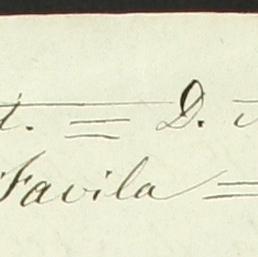 t. = D.
Favila =